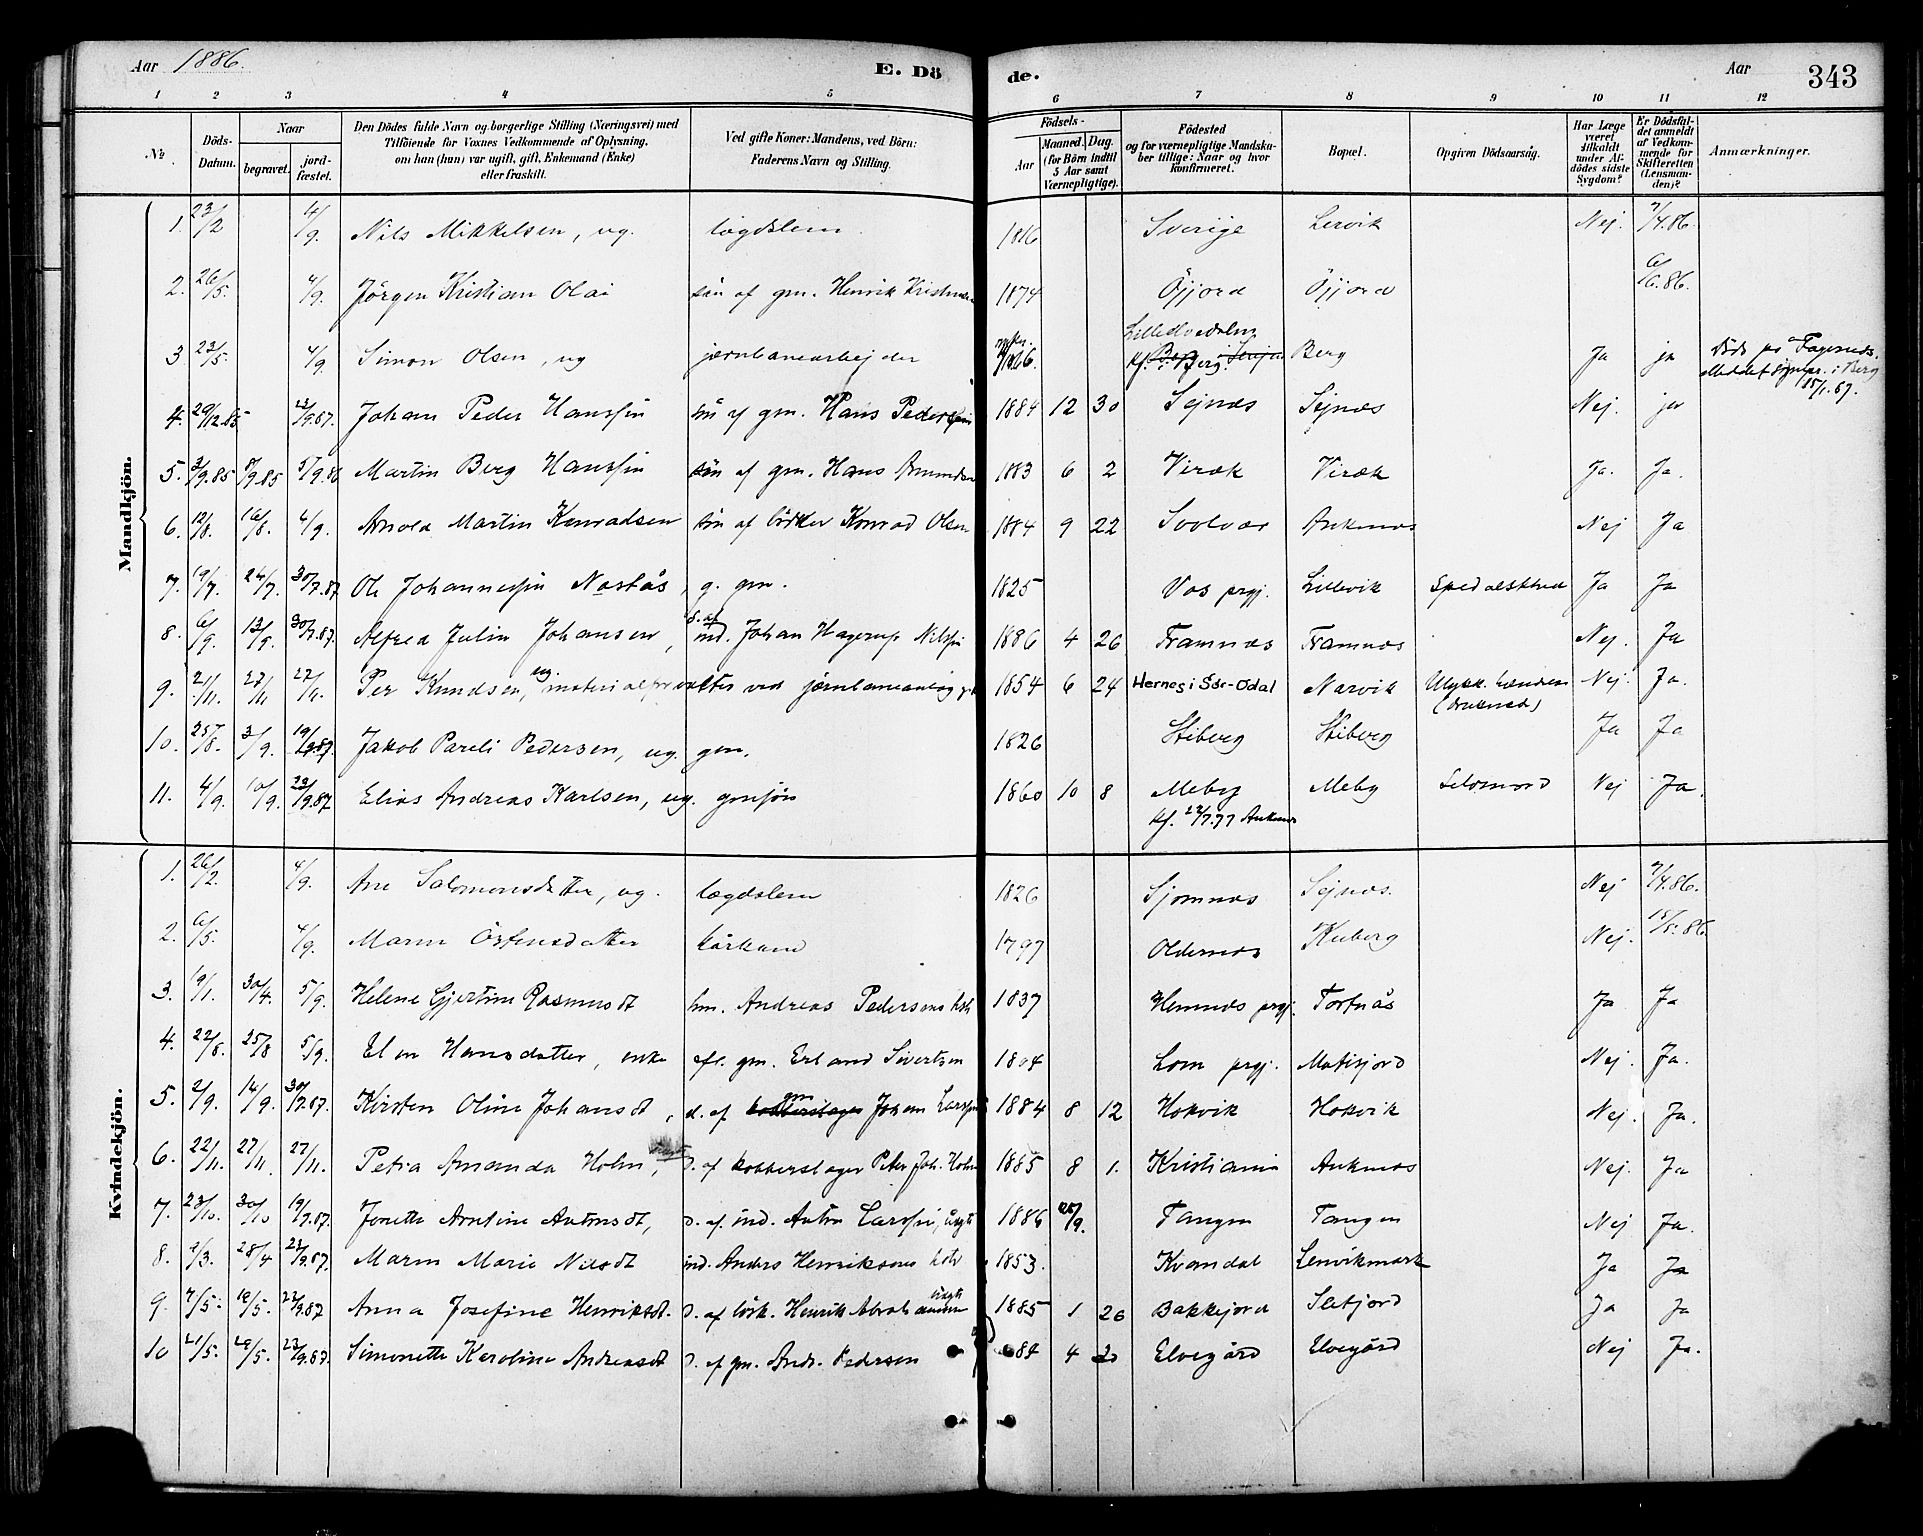 Aar 1886. E. Dö de. Aar 343
1 2 3 4 5 6 7 8 9 10 11 12
No. Döds-Datum. Naar begravet. jord-fæstet. Den Dödes fulde Navn og borgerlige Stilling (Næringsvei) med Tilföiende for Voxnes Vedkommende af Oplysning, om han (hun) var ugift, gift, Enkemand (Enke) eller fraskilt. Ved gifte Koner: Mandens, ved Börn: Faderens Navn og Stilling. Födsels- Aar Maaned Dag (for Börn indtil 5 Aar samt Værnepligtige). Födested og for værnepligtige Mandskaber tillige: Naar og hvor konfirmeret. Bopæl. Opgiven Dödsaarsag. Har Læge været tilkaldt under Afdödes sidste Sygdom? Er Dödsfaldet anmeldt af Vedkommende for Skifteretten (Lensmanden)? Anmærkninger.
Mandkjön.
1. 23/2 4/9. Nils Mikkelsen, ug. lægdslem 1816 Sverige Lervik Nej. 7/4.86.
2. 26/5. 4/9. Jørgen Kristian Olai søn af gm. Henrik 1874 Öjjord Öjjord 6/6.86.
3 23/5. 4/9. Simon Olsen, ug jernbanearbejder Berg Ja ja Døde på
4. 29/12.85 23/9.87. Johan Peder Hanssøn søn af gm. Hans Pederssøn 1884 12 30 Sejnæs Sejnæs Nej. ja
5. 3/9.85 8/9.85 5/9.86 Martin Berg Hanssøn søn af gm. Hans Amundsen 1883 6 2 Viræk Viræk Ja. Ja.
6. 12/8. 16/8. 4/9. Arnold Martin Konradsen søn af bödker Konrad Olsen 1884 9 22 Svolvær Ankenæs Nej Ja
7. 19/7. 24/7. 30/7.87 Ole Johannessøn Nastås, g. gm. 1825 Vos prgj. Lillevik Spedalskhed Ja Ja
8. 6/9. 13/9. 30/7.87. Alfred Julin Johansen, s. af ind. Johan Hagerup Nilssøn 1886 4 26 Framnæs Framnæs Nej. Ja
9. 2/11. 27/11 27/11. Per Knudsen, ug materialforvalter ved jernbaneanlæg 1854 6 24 Hernes i Sør-Odal Narvik Ulykk. hændelse (druknet) Nej. Ja.
10. 25/8. 3/9. 19/9.87. Jakob Pareli Pedersen, ug. gm. 1826 Stiberg Stiberg Ja Ja
11. 4/9. 10/9. 23/9.87. Elias Andreas Karlsen, ug. gmsøn 1860 10 8 Meby Meby Selvmord Nej Ja.
kf. 22/7.77 Ankenæs
Kvindekjön.
1. 26/2. 4/9. Ane Salomonsdatter, ug. lægdslem 1826 Sjomnæs Sejnæs. Nej 7/4.86.
2. 6/5. 4/9. Maren Östensdatter kårkone 1797 Oldernæs Nej. 15/5.86.
3. 19/1. 30/4. 5/9. Helene Gjertine Rasmusdt hm. Andreas Pedersens 1837 Hemnæs prgj. Tortnås Ja Ja
4. 22/8. 25/8 5/9. Elen Hansdatter, enke eft. gm. Erland Sivertsen 1804 Lom prgj. Nej. Ja.
5. 2/9. 14/9. 30/7.87. Kirsten Oline Johansdt, d. af gm Johan Larssøn 1884 8 12 Hokvik Hokvik Nej. Ja.
6. 22/11. 27/11. 27/11. Petra Amanda Holm, d. af kobberslager Peter Joh. Holm 1885 8 1. Kristiania Ankenæs Nej. Ja
7. 23/10. 30/10 19/9.87. Jonette Arntine Antonsdt, d. af ind. Anton Larssøn, 1886 25/9. Tangen Tangen Nej Ja.
8. 2/3. 28/4 23/9.87. Maren Marie Nilsdt ind. Anders Henriksens 1853. Kvandal Lenvikmark Ja Ja
9. 7/5. 18/5. 23/9.87 Anna Josefine Henriksdt. d. af Henrik 1885 1 26 Bakkejord Sletjord Ja Ja
10 21/5. 29/5. 23/9.87. Simonette Karoline Andreasdt d. af gm. Andr. Pedersen 4 20 Elvegård Elvegård Nej Ja.